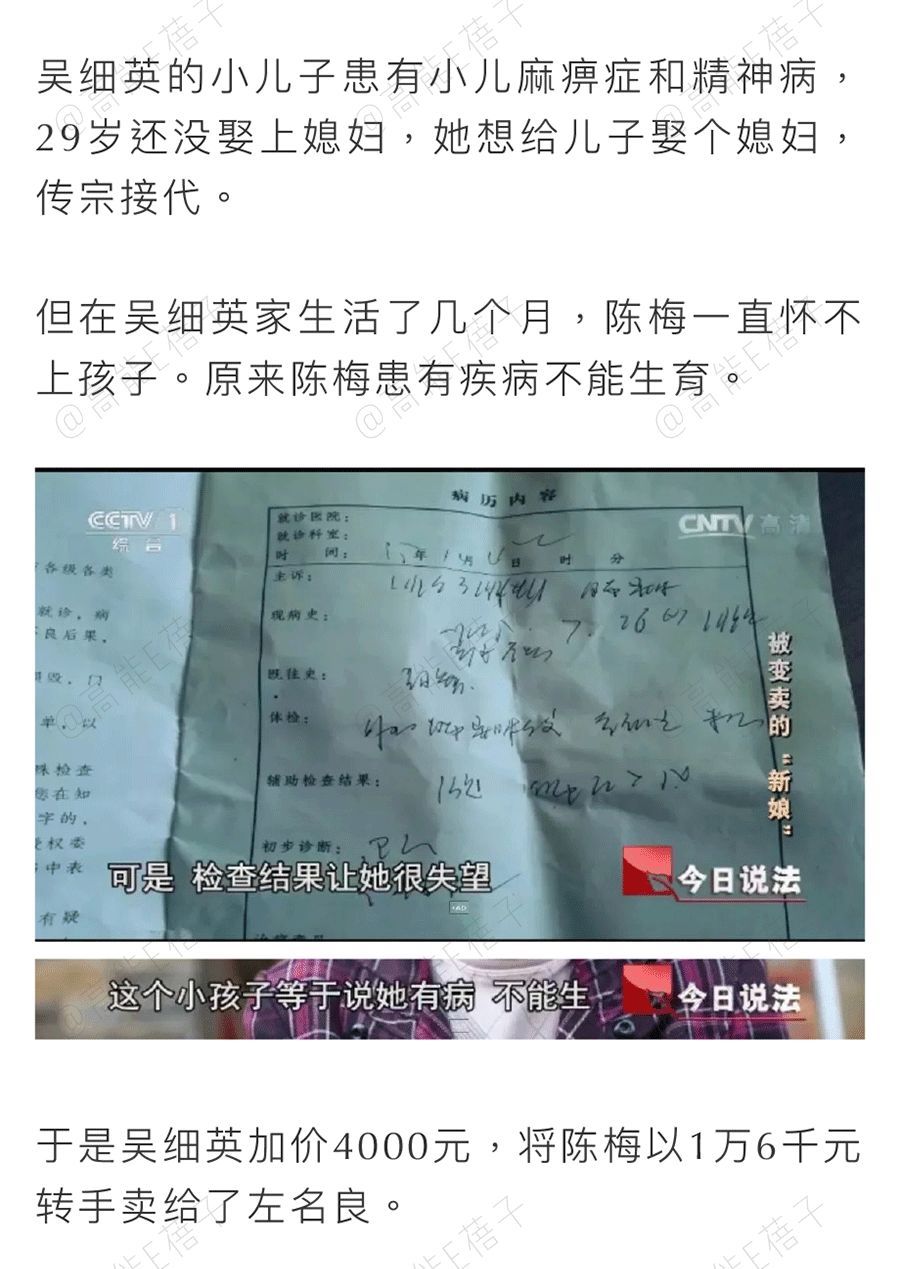 吴细英的小儿子患有小儿麻痹症和精神病，
29岁还没娶上媳妇，她想给儿子娶个媳妇，
传宗接代。
但在吴细英家生活了几个月，陈梅一直怀不
上孩子。原来陈梅患有疾病不能生育。
CCTV 1
综合
CNTV 高清
各级各类
就诊，病
良后果，
单，以
殊检查
您在知
字的，
授权委
中表
有疑
病历内容
就诊医院：
就诊科室：
时 间： 年 月 日 时 分
主诉：
现病史：
7. 26
既往史：
体检：
辅助检查结果：
初步诊断：
被变卖的“新娘”
可是 检查结果让她很失望
今日说法
这个小孩子等于说她有病 不能生
今日说法
于是吴细英加价4000元，将陈梅以1万6千元
转手卖给了左名良。
@高能E蓓子